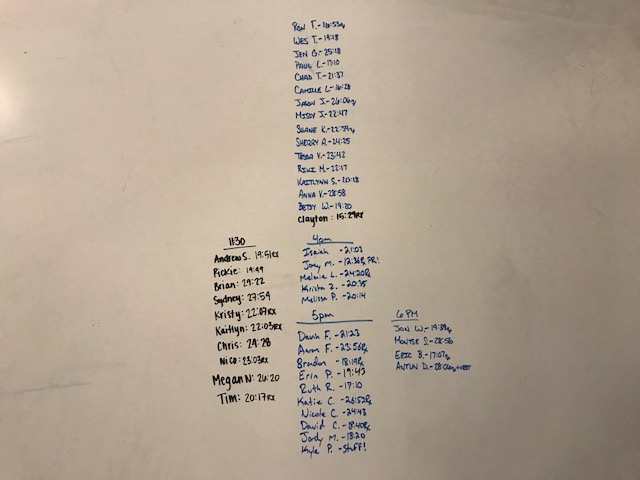 RON T.- 18:53rx
WES T.- 19:18
JEN G.- 25:18
PAUL L.- 17:10
CHAD T.- 21:37
CAMILLE L.- 16:28
JASON J.- 26:06rx
MISSY J.- 22:47
SHANE K.- 22:54rx
SHERRY A.- 24:25
TESSA V.- 23:42
RIKKI M.- 22:17
KAITLYNN S.- 20:18
ANNA K.- 28:58
BETSY W.- 19:20
Clayton: 15:29RX
11:30
Andrew S. 19:51RX
Pickie: 19:49
Brian: 29:22
Sydney: 27:54
Kristy: 22:07RX
Kaitlyn: 22:03RX
Chris: 24:28
Nico: 23:03RX
Megan N: 26:20
Tim: 20:17RX
4pm
Isaiah - 21:03
Joey M. - 12:36Rx PR!
Melanie L. - 24:20Rx
Krista Z. - 20:35
Melissa P. - 20:14
5pm
Devin F. - 21:23
Aaron F. - 23:56Rx
Brandon - 18:19Rx
Erin P. - 19:43
Ruth R. - 17:10
Katie C. - 26:52Rx
Nicole C. - 24:43
David C. - 18:40Rx
Jordy M. - 18:20
Kyle P. - Stuff!
6PM
JON W.- 19:39rx
MONTSE S.- 28:56
ERIC B.- 17:07rx
ANTUN D.- 28:06rx+VEST